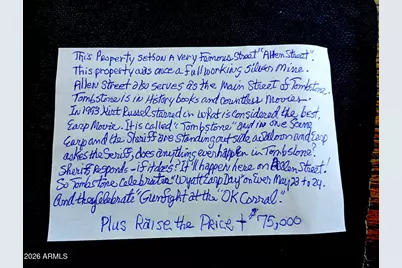 This Property sets on A very Famous Street "Allen Street".
This property was once a full working Silver Mine.
Allen Street also serves as the Main Street of Tombstone.
Tombstone is in History books and countless Movies.
In 1993 Kurt Russel starred in what is considered the best
Earp Movie. It is called "Tombstone" and in one Scene
Earp and the Sheriff are standing outside a Saloon and Earp
asks the Seriff, does anything ever happen in Tombstone?
Sheriff Responds - if it does? It'll happen here on Allen Street!
So Tombstone celebrates "Wyatt Earp Day" on May 23 + 24.
And they Celebrate "Gunfight at the "OK Corral"
Plus Raise the Price + $75,000
© 2026 ARMLS